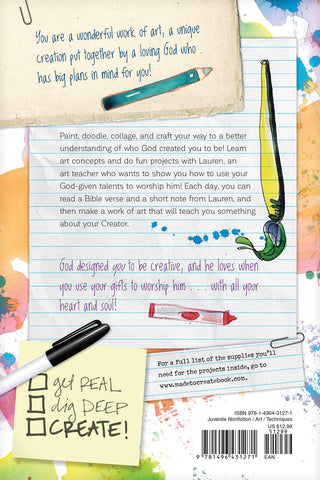 You are a wonderful work of art, a unique
creation put together by a loving God who
has big plans in mind for you!
Paint, doodle, collage, and craft your way to a better
understanding of who God created you to be! Learn
art concepts and do fun projects with Lauren, an
art teacher who wants to show you how to use your
God-given talents to worship him! Each day, you can
read a Bible verse and a short note from Lauren, and
then make a work of art that will teach you something
about your Creator.
God designed you to be creative, and he loves when
you use your gifts to worship him . . . with all your
heart and soul!
For a full list of the supplies you'll
need for the projects inside, go to
www.madetocreatebook.com.
get REAL
dig DEEP
CREATE!
ISBN 978-1-4964-3127-1
Juvenile Nonfiction / Art / Techniques
US $12.99
51299
9 781496 431271
EAN